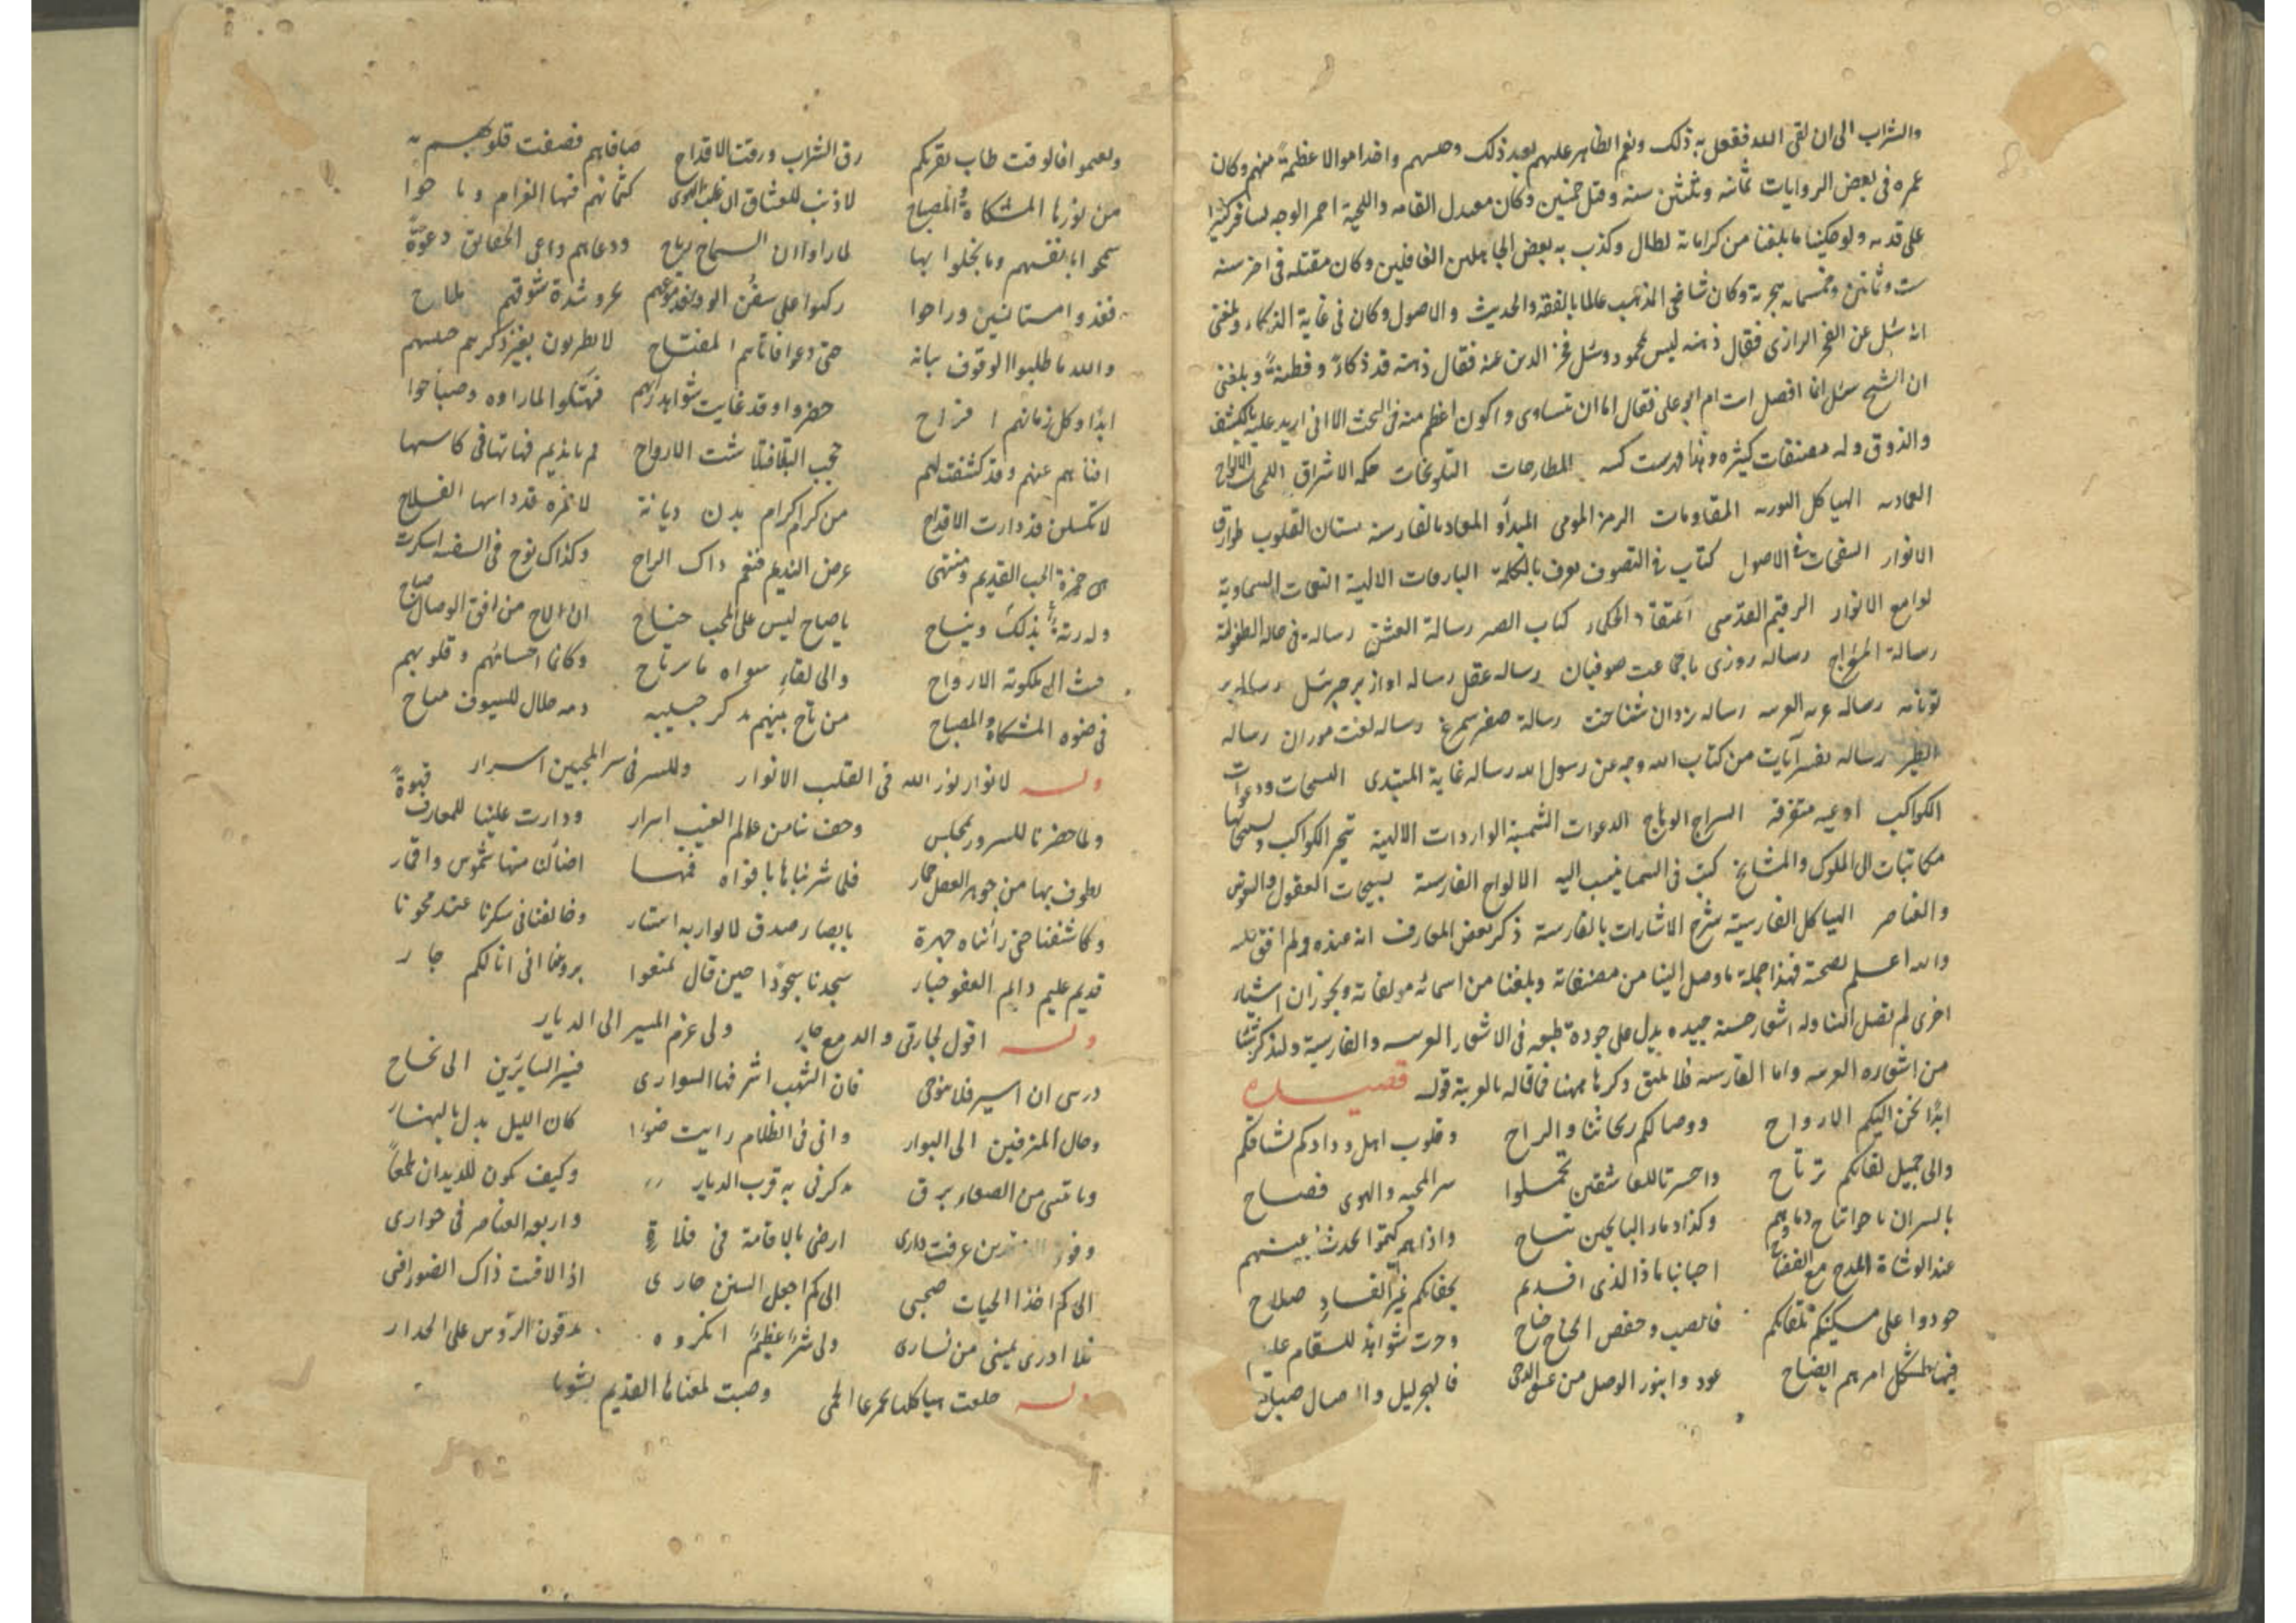 والشراب الى ان لقى الله ففعل به ذلك ونقم الظاهر عليهم بعد ذلك وحبسهم واخذ اموالا عظيمة منهم وكان
عمره فى بعض الروايات ثمانية وثلثين سنة وقيل خمسين وكان معتدل القامه واللحية احمر الوجه يسافر كثيرا
على قدميه ولو حكينا ما بلغنا من كراماته لطال وكذب به بعض الجاهلين الغافلين وكان مقتله فى اخر سنه
ست وثمانين وخمسمايه هجرية وكان شافعى المذهب عالما بالفقه والحديث والاصول وكان فى غاية الذكاء وبلغنى
انه سئل عن الفخر الرازى فقال ذهنه ليس بمحمود وسئل فخر الدين عنه فقال ذهنه قد ذكاء وفطنة وبلغنى
ان الشيخ سئل انما افضل انت ام ابو على فقال اما ان نتساوى او اكون اعظم منه فى البحث الا انى ازيد عليه بالكشف
والذوق وله مصنفات كثيره وهذا فهرست كتبه المطارحات التلويحات حكمه الاشراق اللمحات الالواح
العماديه الهياكل النوريه المقاومات الرمز المومى المبدأ والمعاد بالفارسيه بستان القلوب طوارق
الانوار النفحات فى الاصول كتاب فى التصوف يعرف بالكلمة البارقات الالهية النغمات السماوية
لوامع الانوار الرقيم القدسى اعتقاد الحكماء كتاب الصبر رسالة العشق رسالة فى حاله الطفولية
رسالة المعراج رساله روزى با جماعت صوفيان رساله عقل رساله اواز پر جبرئيل رساله پر
تونامه رساله غربه الغربيه رساله يزدان شناخت رسالة صفير سيمرغ رساله لغت موران رساله
الطير رساله تفسير آيات من كتاب الله وخبر عن رسول الله رساله غاية المبتدى التسبيحات ودعوات
الكواكب ادعيه متفرقه السراج الوهاج الدعوات الشمسية الواردات الالهية تسخير الكواكب وتسبيحاتها
مكاتبات الى الملوك والمشايخ كتب فى السيميا ينسب اليه الالواح الفارسية تسبيحات العقول والنفوس
والعناصر الهياكل الفارسية شرح الاشارات بالفارسية ذكر بعض المعارف انه عنده ولم اقف عليه
والله اعلم بصحته فهذا جملة ما وصل الينا من مصنفاته وبلغنا من اسمائه مولفاته ويجوز ان اشياء
اخرى لم تصل الينا وله اشعار حسنة جيده يدل على جودة طبعه فى الاشعار العربيه والفارسية ولنذكر شيئا
من اشعاره العربيه واما الفارسيه فلا يليق ذكرها ههنا فما قاله بالعربية قوله قصيده
ابدًا تحن اليكم الارواح ووصالكم ريحانها والراح وقلوب اهل ودادكم تشتاقكم
والى جميل لقائكم ترتاح واحسرتا للعاشقين تحملوا سر المحبه والهوى فضاح
بالسر ان باحوا تباح دماؤهم وكذا دماء البايحين تباح واذا هم كتموا تحدث عنهم
عند الوشاة المدمع السفاح احبابنا ماذا الذى افسدتم بجفائكم غير الفساد صلاح
جودوا على مسكينكم بلقائكم فالصب وخفض الجناح جناح وجرت شواهد للسقام عليهم
فيها لمشكل امرهم ايضاح عودوا بنور الوصل من غسق الدجى فالهجر ليل والوصال صباح
وتمتعوا فالوقت طاب بقربكم رق الشراب ورقت الاقداح صافاهم فصفت قلوبهم به
من نورها المشكاة والمصباح لا ذنب للعشاق ان غلب الهوى كتمانهم فنما الغرام وباحوا
سمحوا بانفسهم وما بخلوا بها لما راوا ان السماح رباح ودعاهم داعى الحقايق دعوة
فغدوا مستانسين وراحوا ركبوا على سفن الوفا ودموعهم بحر وشدة شوقهم ملاح
والله ما طلبوا الوقوف ببابه حتى دعوا فاتاهم المفتاح لا يطربون بغير ذكر حبيبهم
ابدًا وكل زمانهم افراح حضروا وقد غابت شواهد ذاتهم فتهتكوا لما راوه وصاحوا
افناهم عنهم وقد كشفت لهم حجب البقا فتلاشت الارواح
لا تكسلن قد دارت الاقداح من كرم اكرام بدن ديانة لا خمرة قد داسها الفلاح
هى خمرة الحب القديم ومنتهى غرض النديم فنعم ذاك الراح وكذاك نوح فى السفينه اسكرت
وله رنة بذلك ونياح يا صاح ليس على المحب جناح ان لاح من افق الوصال صباح
حنت الى ملكوته الارواح والى لقاء سواه ما يرتاح وكانما اجسامهم وقلوبهم
فى ضوء المشكاة والمصباح من باح بينهم بذكر حبيبه دمه حلال للسيوف مباح
وله لانوار نور الله فى القلب انوار وللسر فى سر المحبين اسرار
ولما حضرنا للسرور بمجلس وحف بنا من عالم الغيب اسرار ودارت علينا للمعارف قهوة
يطوف بها من جوهر العقل خمار فلما شربناها بافواه فهمها اضاءت منها شموس واقمار
وكاشفنا حتى رأيناه جهرة بابصار صدق لا تواريه استار وخالفنا فى سكرنا عند محونا
قديم عليم دايم العفو جبار سجدنا سجودًا حين قال تمتعوا برويتنا انى انا لكم جار
وله اقول لجارتى والدمع جار ولى عزم المسير الى الديار
ذرينى ان اسير فلا تنوحى فان الشهب اشرفها السوارى فسير السائرين الى نجاح
وحال المترفين الى البوار وانى فى الظلام رايت ضوءا كان الليل بدل بالنهار
يذكرنى به قرب الديار وكيف يكون للديدان طعما
ارضى بالاقامة فى فلاة واربعه العناصر فى جوارى
الى كم اخذ الحيات صحبى الى كم اجعل التنين جارى اذا لاقت ذاك الضور افنى
فلا ادرى يمينى من يسارى ولى سر عظيم انكروه يدقون الرؤس على الجدار
وله خلعت هياكلها بجرعا الحمى وصبت لمغناها القديم تشوقا